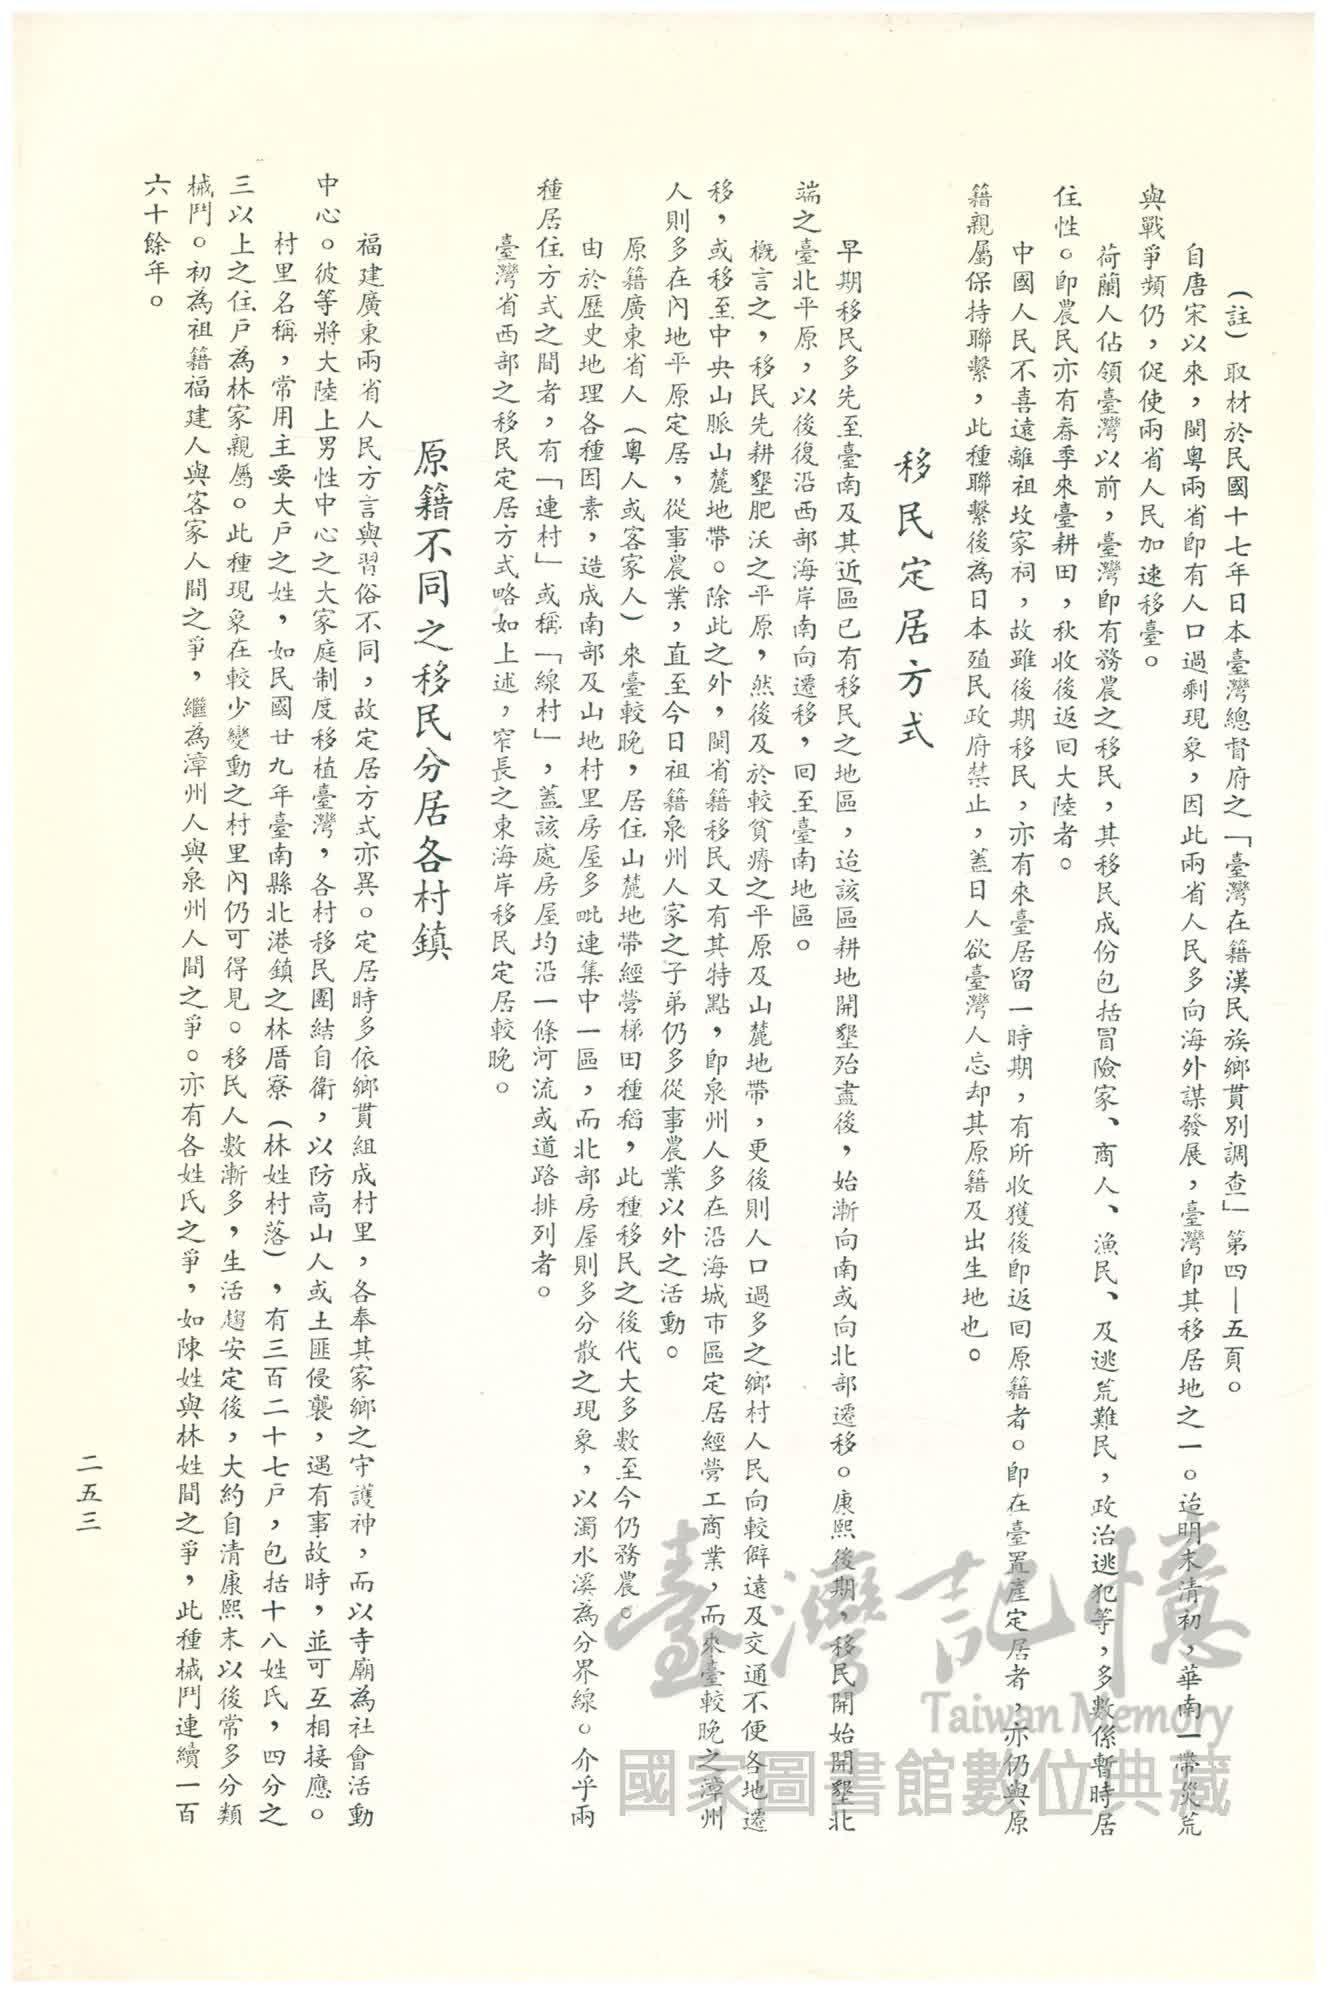 (註)取材於民國十七年日本臺灣總督府之「臺灣在籍漢民族鄉貫別調查」第四—五頁。
自唐宋以來，閩粵兩省即有人口過剩現象，因此兩省人民多向海外謀發展，臺灣即其移居地之一。迨明末清初，華南一帶災荒
與戰爭頻仍，促使兩省人民加速移臺。
荷蘭人佔領臺灣以前，臺灣即有務農之移民，其移民成份包括冒險家、商人、漁民、及逃荒難民，政治逃犯等，多數係暫時居
住性。即農民亦有春季來臺耕田，秋收後返回大陸者。
中國人民不喜遠離祖坟家祠，故雖後期移民，亦有來臺居留一時期，有所收獲後即返回原籍者。即在臺置產定居者，亦仍與原
籍親屬保持聯繫，此種聯繫後為日本殖民政府禁止，蓋日人欲臺灣人忘却其原籍及出生地也。
移民定居方式
早期移民多先至臺南及其近區已有移民之地區，迨該區耕地開墾殆盡後，始漸向南或向北部遷移。康熙後期，移民開始開墾北
端之臺北平原，以後復沿西部海岸南向遷移，回至臺南地區。
概言之，移民先耕墾肥沃之平原，然後及於較貧瘠之平原及山麓地帶，更後則人口過多之鄉村人民向較僻遠及交通不便各地遷
移，或移至中央山脈山麓地帶。除此之外，閩省籍移民又有其特點，即泉州人多在沿海城市區定居經營工商業，而來臺較晚之漳州
人則多在內地平原定居，從事農業，直至今日祖籍泉州人家之子弟仍多從事農業以外之活動。
原籍廣東省人(粵人或客家人)來臺較晚，居住山麓地帶經營梯田種稻，此種移民之後代大多數至今仍務農。
由於歷史地理各種因素，造成南部及山地村里房屋多毗連集中一區，而北部房屋則多分散之現象，以濁水溪為分界線。介乎兩
種居住方式之間者，有「連村」或稱「線村」，蓋該處房屋均沿一條河流或道路排列者。
臺灣省西部之移民定居方式略如上述，窄長之東海岸移民定居較晚。
原籍不同之移民分居各村鎮
福建廣東兩省人民方言與習俗不同，故定居方式亦異。定居時多依鄉貫組成村里，各奉其家鄉之守護神，而以寺廟為社會活動
中心。彼等將大陸上男性中心之大家庭制度移植臺灣，各村移民團結自衛，以防高山人或土匪侵襲，遇有事故時，並可互相接應。
村里名稱，常用主要大戶之姓，如民國廿九年臺南縣北港鎮之林厝寮(林姓村落)，有三百二十七戶，包括十八姓氏，四分之
三以上之住戶為林家親屬。此種現象在較少變動之村里內仍可得見。移民人數漸多，生活趨安定後，大約自清康熙末以後常多分類
械鬥。初為祖籍福建人與客家人間之爭，繼為漳州人與泉州人間之爭。亦有各姓氏之爭，如陳姓與林姓間之爭，此種械鬥連續一百
六十餘年。
二五三
臺灣記憶
Taiwan Memory
國家圖書館數位典藏